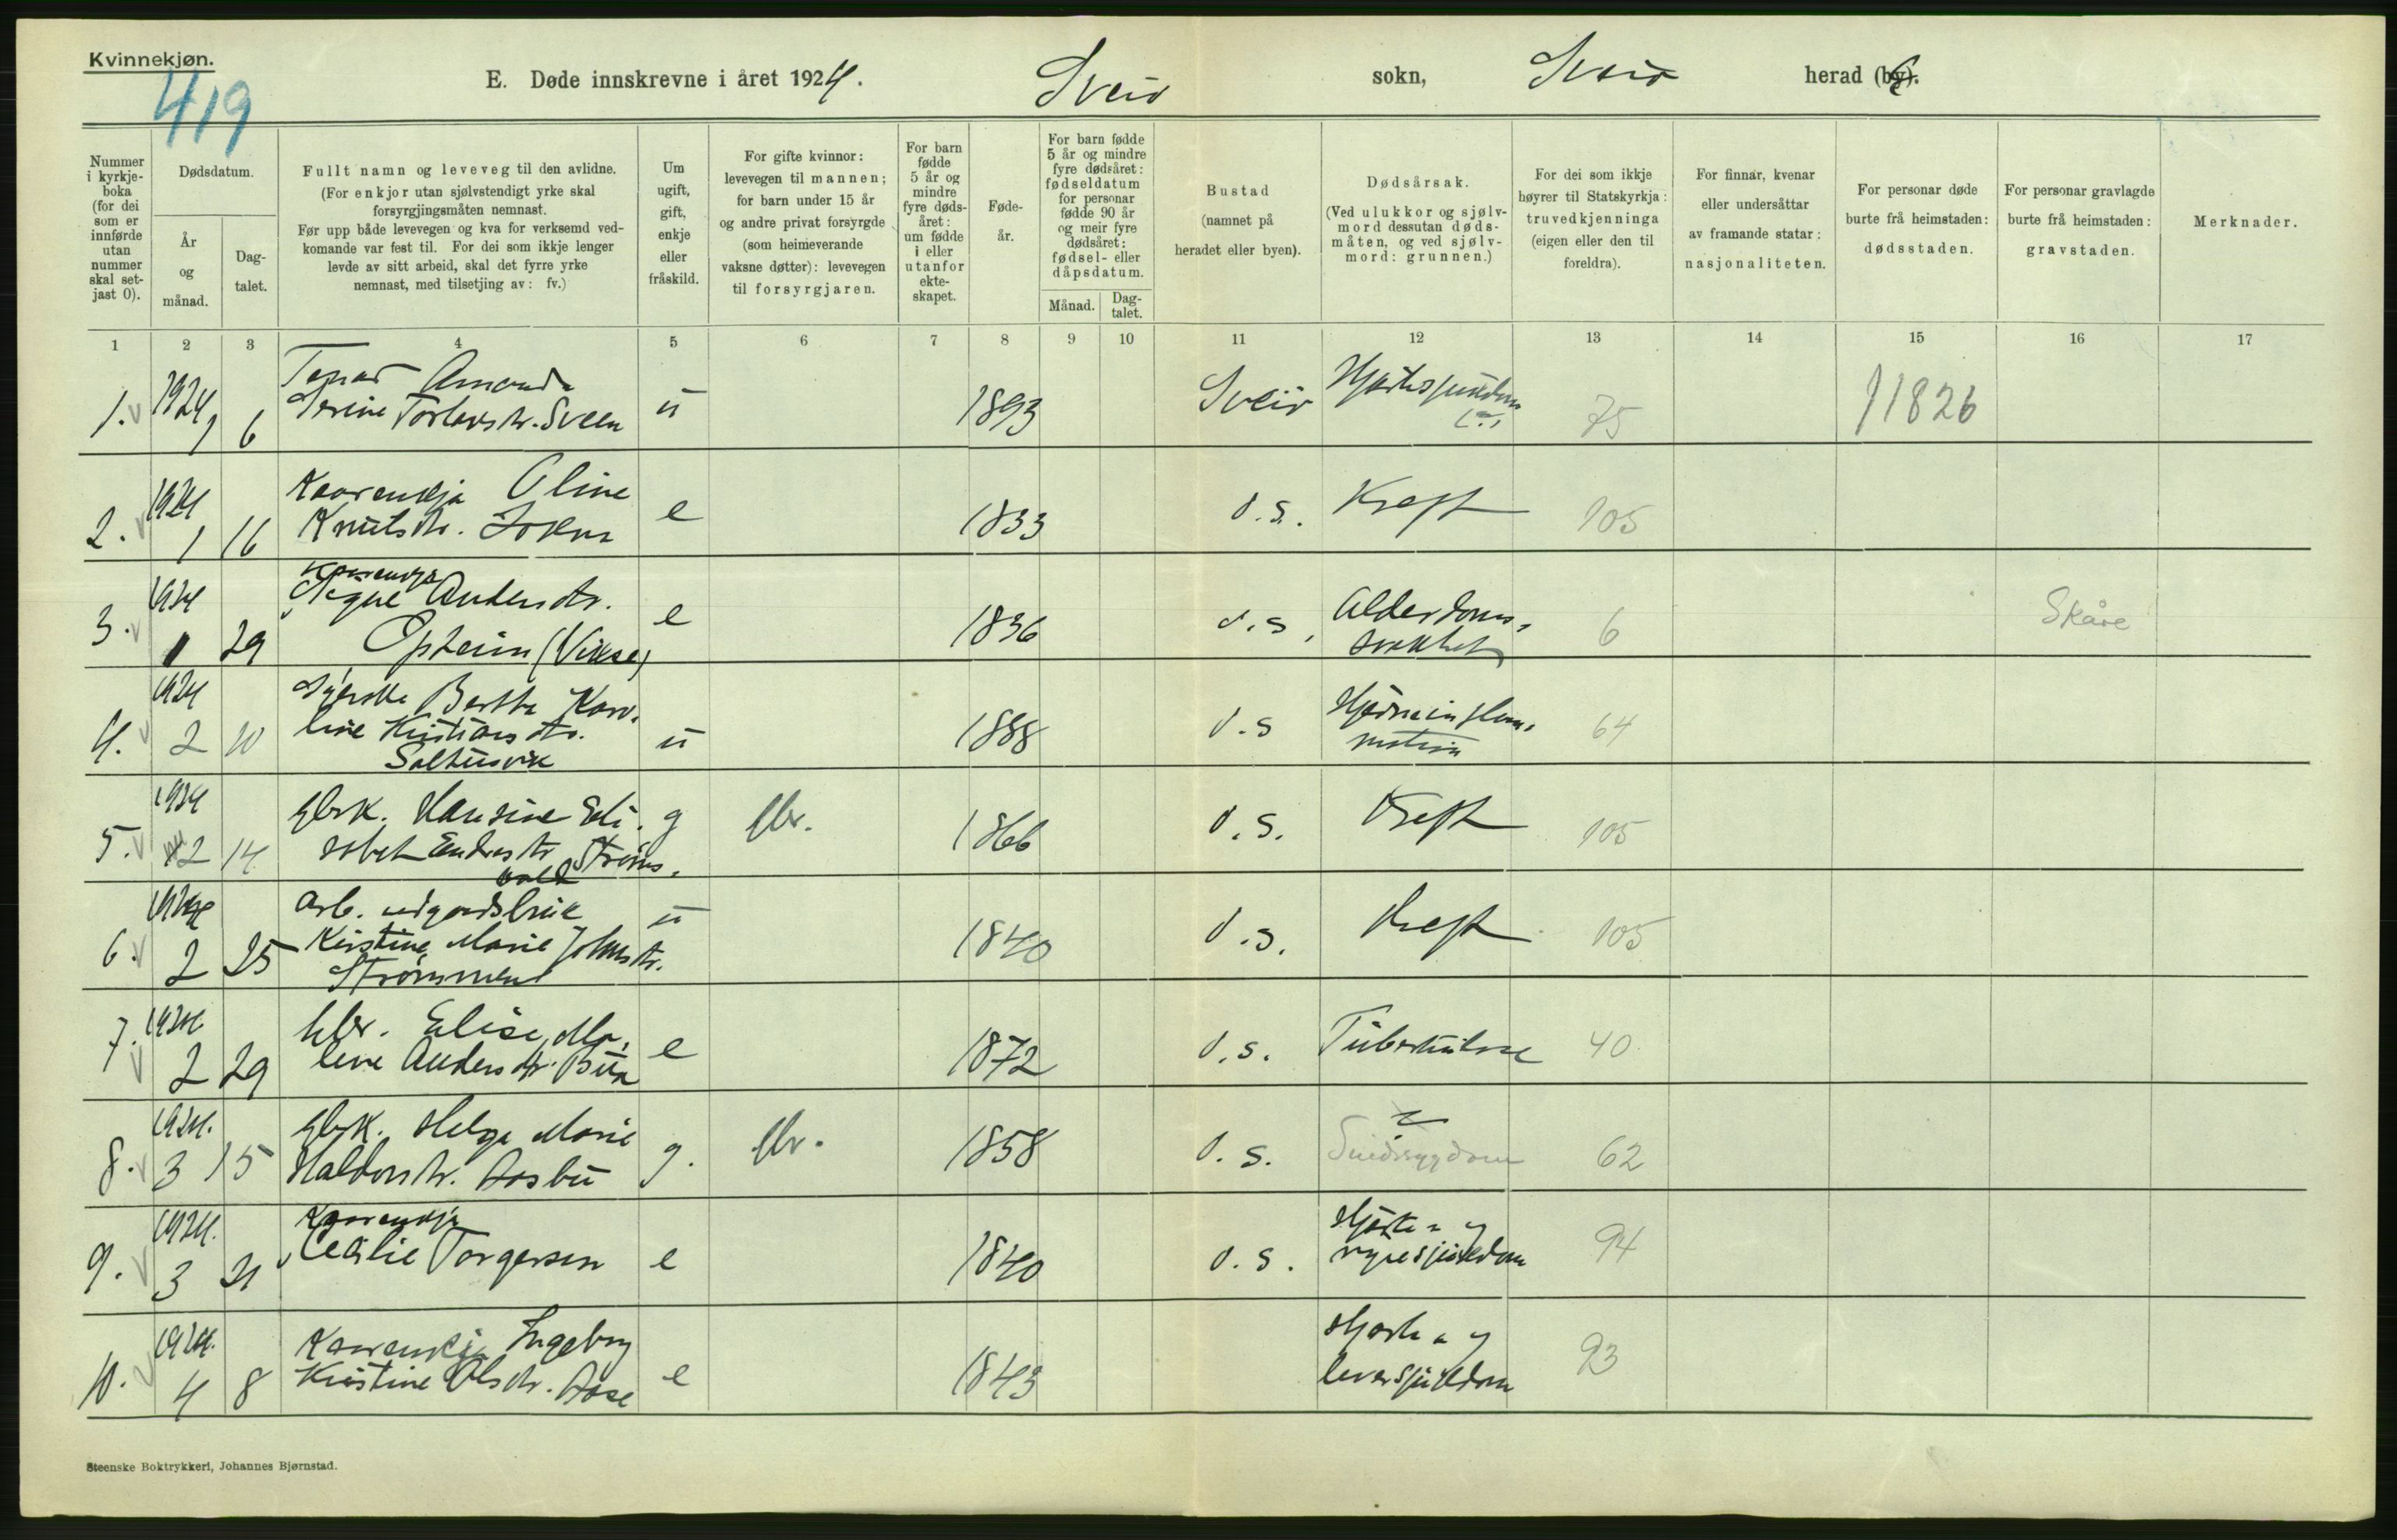 Kvinnekjøn.
419
E. Døde innskrevne i året 1924. Sveio sokn, Sveio herad (by).
Nummer i kyrkje-boka (for dei som er innførde utan nummer skal set-jast 0).
Dødsdatum.
År og månad.
Dag-talet.
Fullt namn og leveveg til den avlidne.
(For enkjor utan sjølvstendigt yrke skal
forsyrgjingsmåten nemnast.
Før upp både levevegen og kva for verksemd ved-
komande var fest til. For dei som ikkje lenger
levde av sitt arbeid, skal det fyrre yrke
nemnast, med tilsetjing av: fv.)
Um ugift, gift, enkje eller fråskild.
For gifte kvinnor:
levevegen til mannen;
for barn under 15 år
og andre privat forsyrgde
(som heimeverande
vaksne døtter): levevegen
til forsyrgjaren.
For barn fødde 5 år og mindre fyre døds-året: um fødde i eller utanfor ekte-skapet.
Føde-år.
For barn fødde
5 år og mindre
fyre dødsåret:
fødseldatum
for personar
fødde 90 år
og meir fyre
dødsåret:
fødsel- eller
dåpsdatum.
Månad.
Dag-talet.
Bustad
(namnet på
heradet eller byen).
Dødsårsak.
(Ved ulukkor og sjølv-
mord dessutan døds-
måten, og ved sjølv-
mord: grunnen.)
For dei som ikkje
høyrer til Statskyrkja:
truvedkjenninga
(eigen eller den til
foreldra).
For finnar, kvenar
eller undersåttar
av framande statar:
nasjonaliteten.
For personar døde
burte frå heimstaden:
dødsstaden.
For personar gravlagde
burte frå heimstaden:
gravstaden.
Merknader.
1 2 3 4 5 6 7 8 9 10 11 12 13 14 15 16 17
1. 1924 1 6 Amanda
Serine Torleivsdr. Sveen u 1893 Sveio 75 11826
2. 1924 1 16 Kaarenkja Oline
Knutsdr. e 1833 d.s. Kreft 105
3. 1924 1 29 Kaarenkja
Andersdr.
Opheim (Vikse) e 1836 d.s. Alderdoms-
svekkhet 6 Skåre
4. 1924 2 10 Bertha Karo-
line Kristiansdr.
Saltusvik u 1888 d.s 64
5. 1924 2 14 Gbrk. Hansine Eli-
sabet Endresdr. Strøms-
vold g gbr. 1866 d.s. Kreft 105
6. 1924 2 25 Arb. ved gardsbruk
Kirstine Marie Johnsdr.
Strømmen u 1840 d.s. Kreft 105
7. 1924 2 29 Elise Ma-
lene Andersdr. Bua e 1872 d.s. Tuberkulose 40
8. 1924. 3 15 Gbrk. Helga Marie
Haldorsdr. Aasbu g. gbr. 1858 d.s. 62
9. 1924. 3 21 Kaarenkja
Cecilie Torgersen e 1840 d.s. Hjarte- og
nyresjukdom 94
10. 1924. 4 8 Kaarenkja Ingeborg
Kristine Olsdr. Aase e 1843 Hjarte- og
leversjukdom 93
Steenske Boktrykkeri, Johannes Bjørnstad.